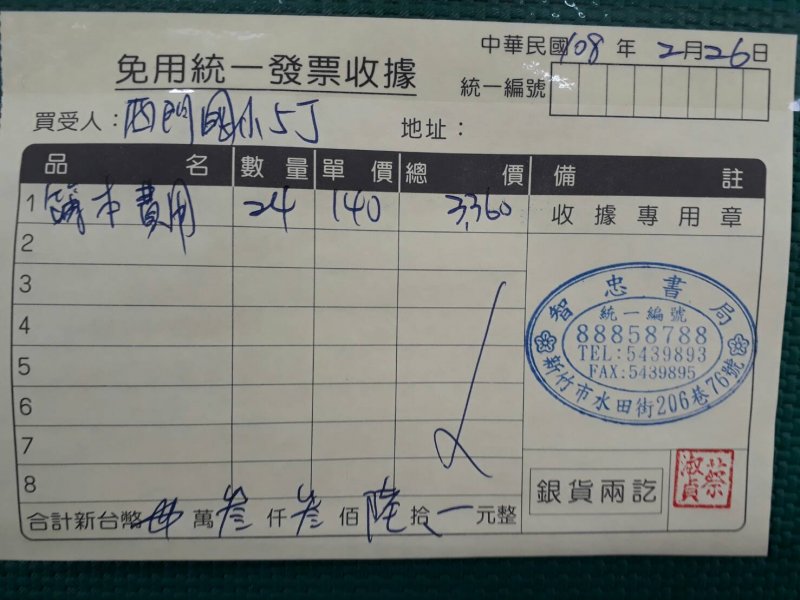 中華民國108年2月26日
免用統一發票收據
統一編號
買受人：西門國小5丁
地址：
品名 數量 單價 總價 備註
1 簿本費用 24 140 3,360
收據專用章
2
3
4
5
6
7
8
智忠書局
統一編號
88858788
TEL:5439893
FAX:5439895
新竹市水田街206巷76號
銀貨兩訖
蔡淑貞
合計新台幣 萬叁仟叁佰陸拾 元整